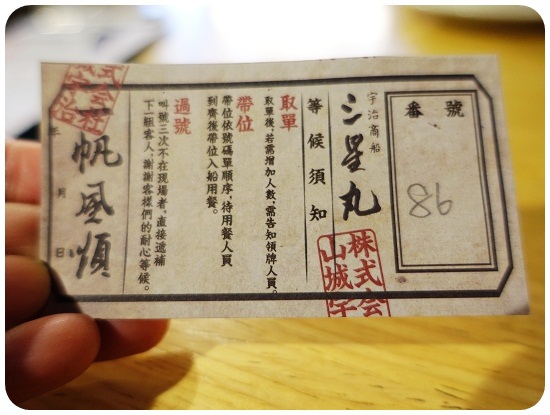 番號
86
宇治商船
三星丸
株式会
山城宇
等候須知
取單
取單後,若需增加人數,需告知領牌人員。
帶位
帶位依號碼單順序,待用餐人員
到齊後帶位入船用餐。
過號
叫號三次不在現場者,直接遞補
下一組客人,謝謝客樣們的耐心等候。
帆風順
年月日
式会社
宇治